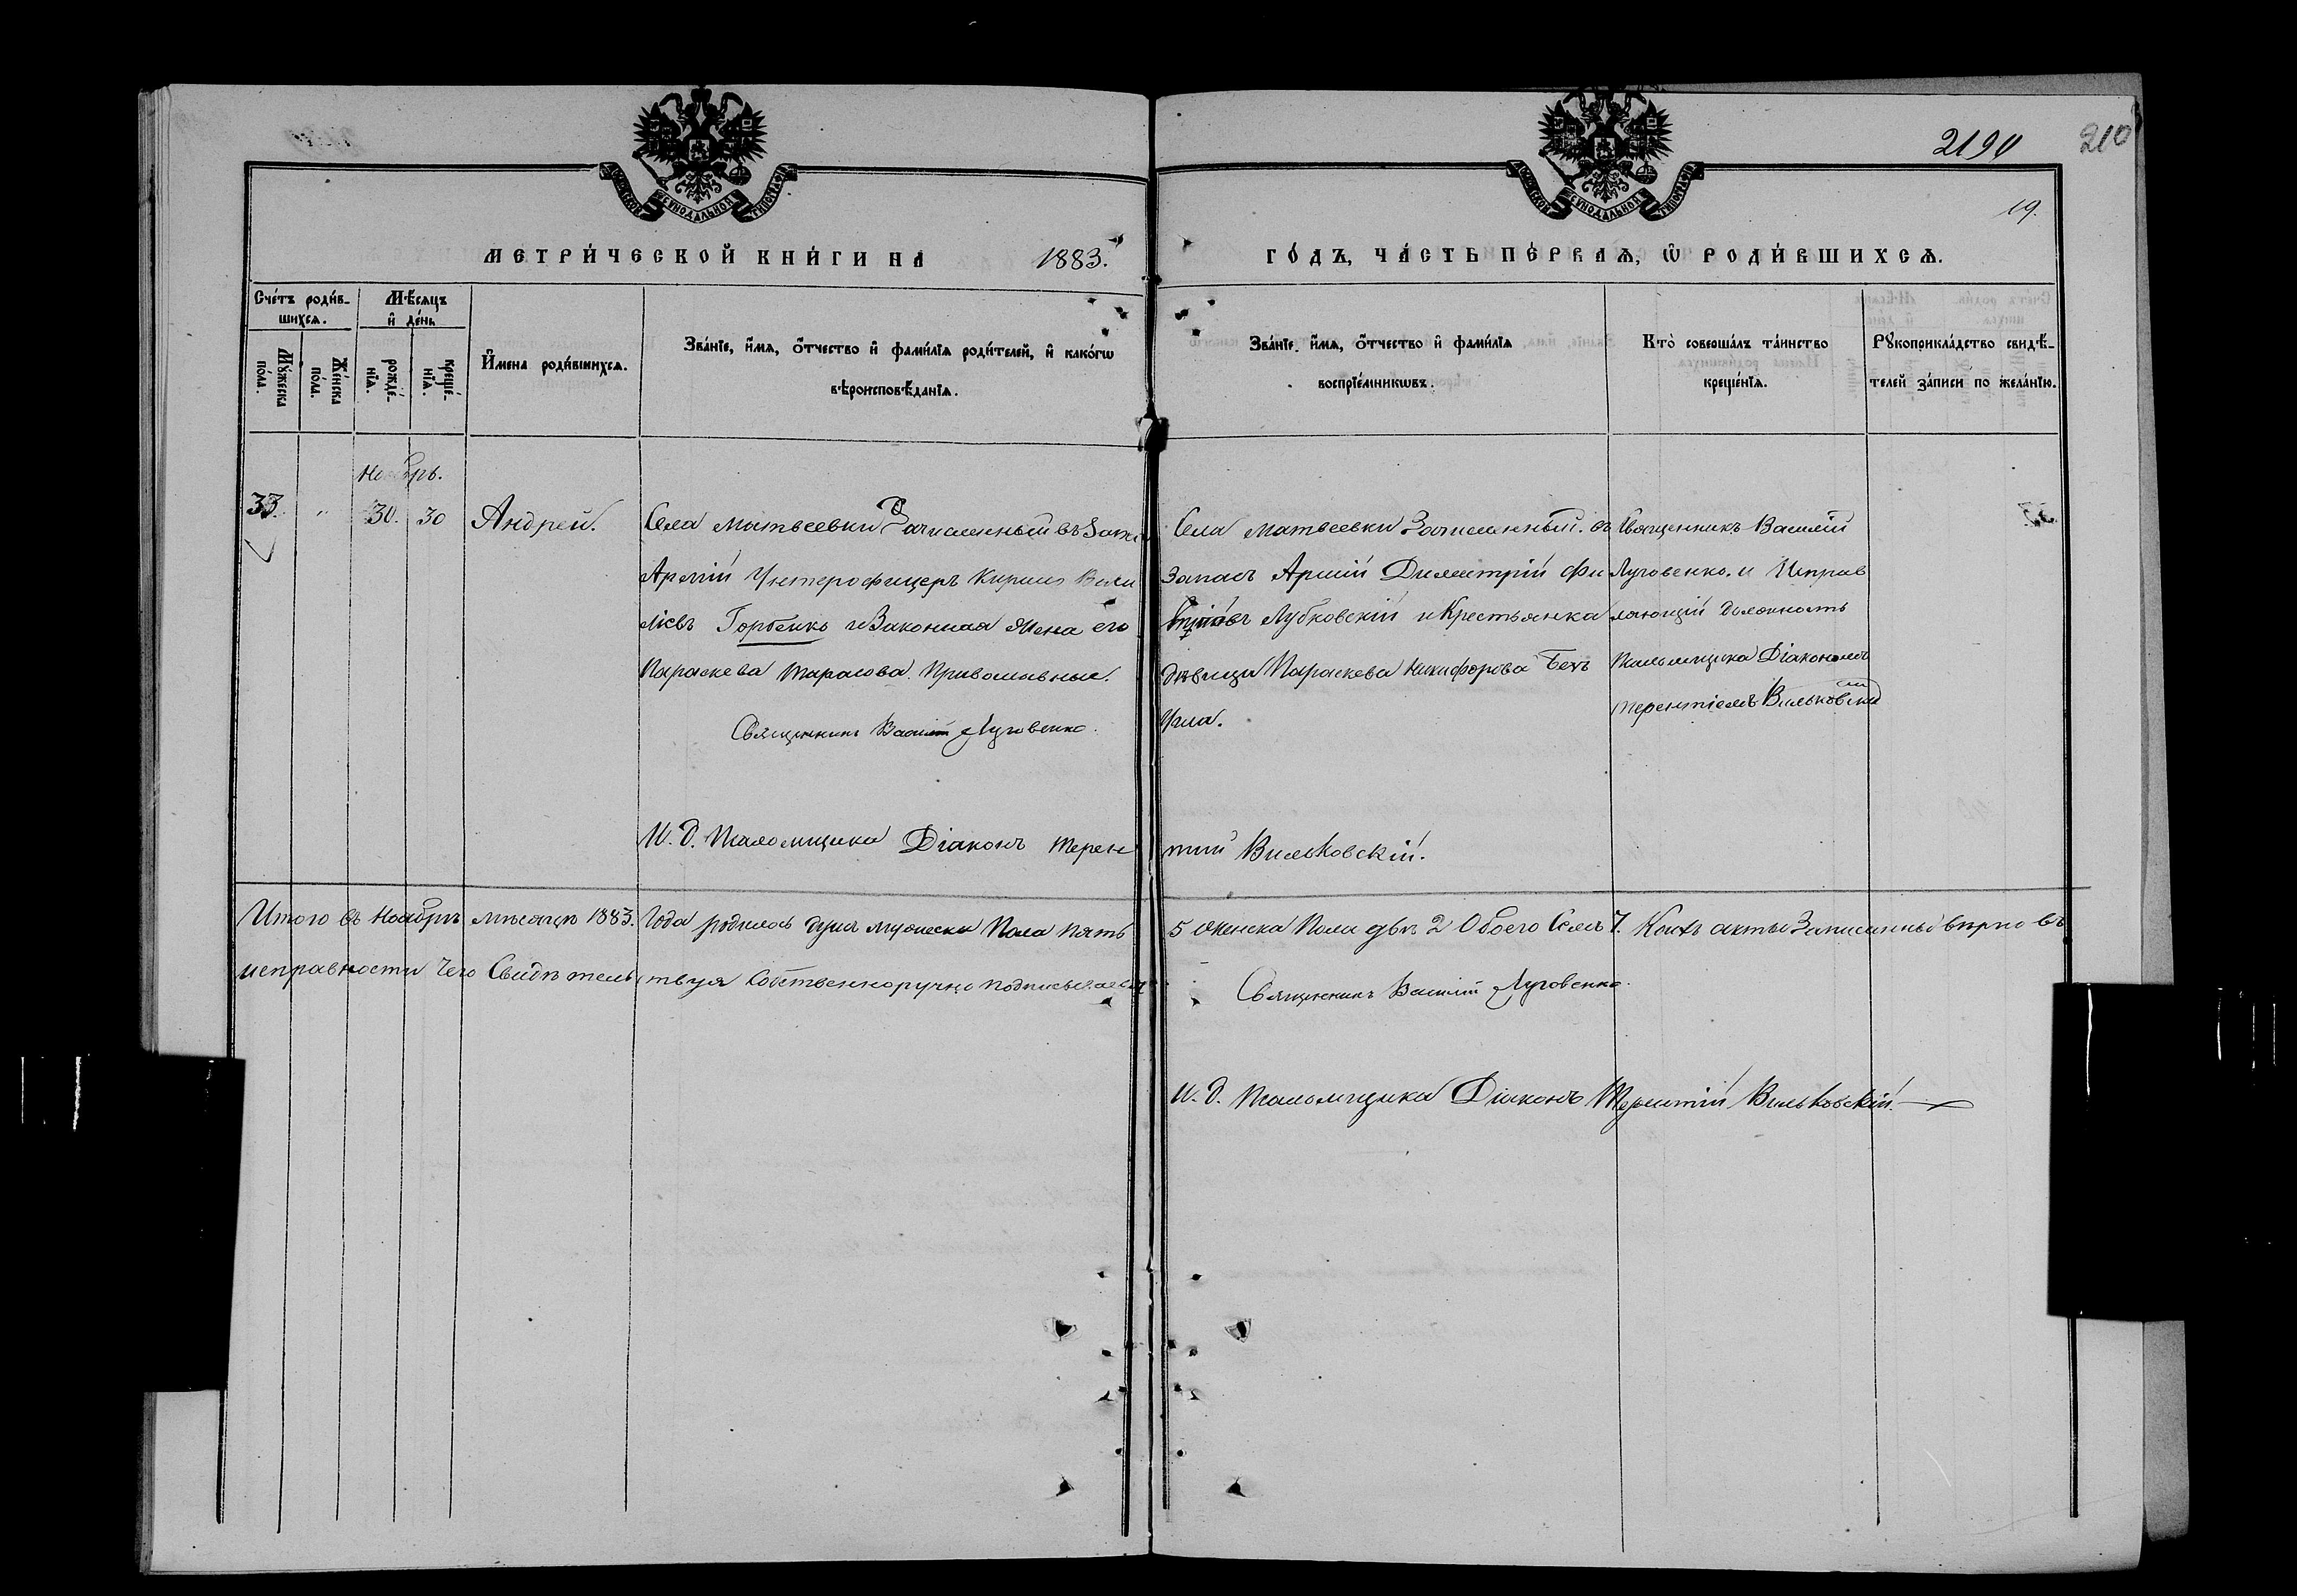 2190
210
19.
МЕТРИ́ЧЕСКОЙ КНИ́ГИ НА 1883.
ГО́ДЪ, ЧА́СТЬ ПЕ́РВАѦ, Ѡ РОДИ́ВШИХСѦ.
Сче́тъ роди́в-
шихсѧ.
Мѣ́сѧцъ
и҆ де́нь
Мꙋ́жеска
по́ла.
Же́нска
по́ла.
рожде́-
нїѧ.
креще́-
нїѧ.
И҆мена роди́вшихсѧ.
Зва́нїе, и҆́мѧ, ѻ҆́тчество и҆ фами́лїѧ роди́телей, и҆ како́гѡ
вѣроисповѣ́данїѧ.
Зва́нїе, и҆́мѧ, ѻ҆́тчество и҆ фами́лїѧ
воспрїе́мникѡвъ.
Кто̀ соверша́лъ та́инство
креще́нїѧ.
Рꙋкоприкла́дство свидѣ́-
телей за́писи по жела́нїю.
Ноябрь.
33. " 30. 30 Андрей.
Села Матвеевки Зачисленный въ Запа
Арміи Унтерофицеръ Кирилъ Васи
ліевъ Горбенко и Законная Жена его
Параскева Тарасова. Православные.
Священникъ Василій Луговенко.
И. д. Псаломщика Діаконъ Терен
Села Матвеевки Зачисленный въ
Запасъ Арміи Димитрій
Лубковскій и Крестьянка
дѣвица Параскева Никифорова
тій Вильковскій.
Священникъ Василій
Луговенко. и Исправ
ляющій должность
Псаломщика Діакономъ
Терентіемъ Вильковским
Итого въ Ноябрѣ мѣсяцѣ 1883. Года родилось душъ мужеска Пола пять
5 Женска Пола двѣ 2 Обоего 7. акты Записанны вѣрно въ
исправности чего Свидѣтельствуя Собственноручно подписываемся
Священникъ Василій Луговенко.
И. д. Псаломщика Діаконъ Терентій Вильковскій.